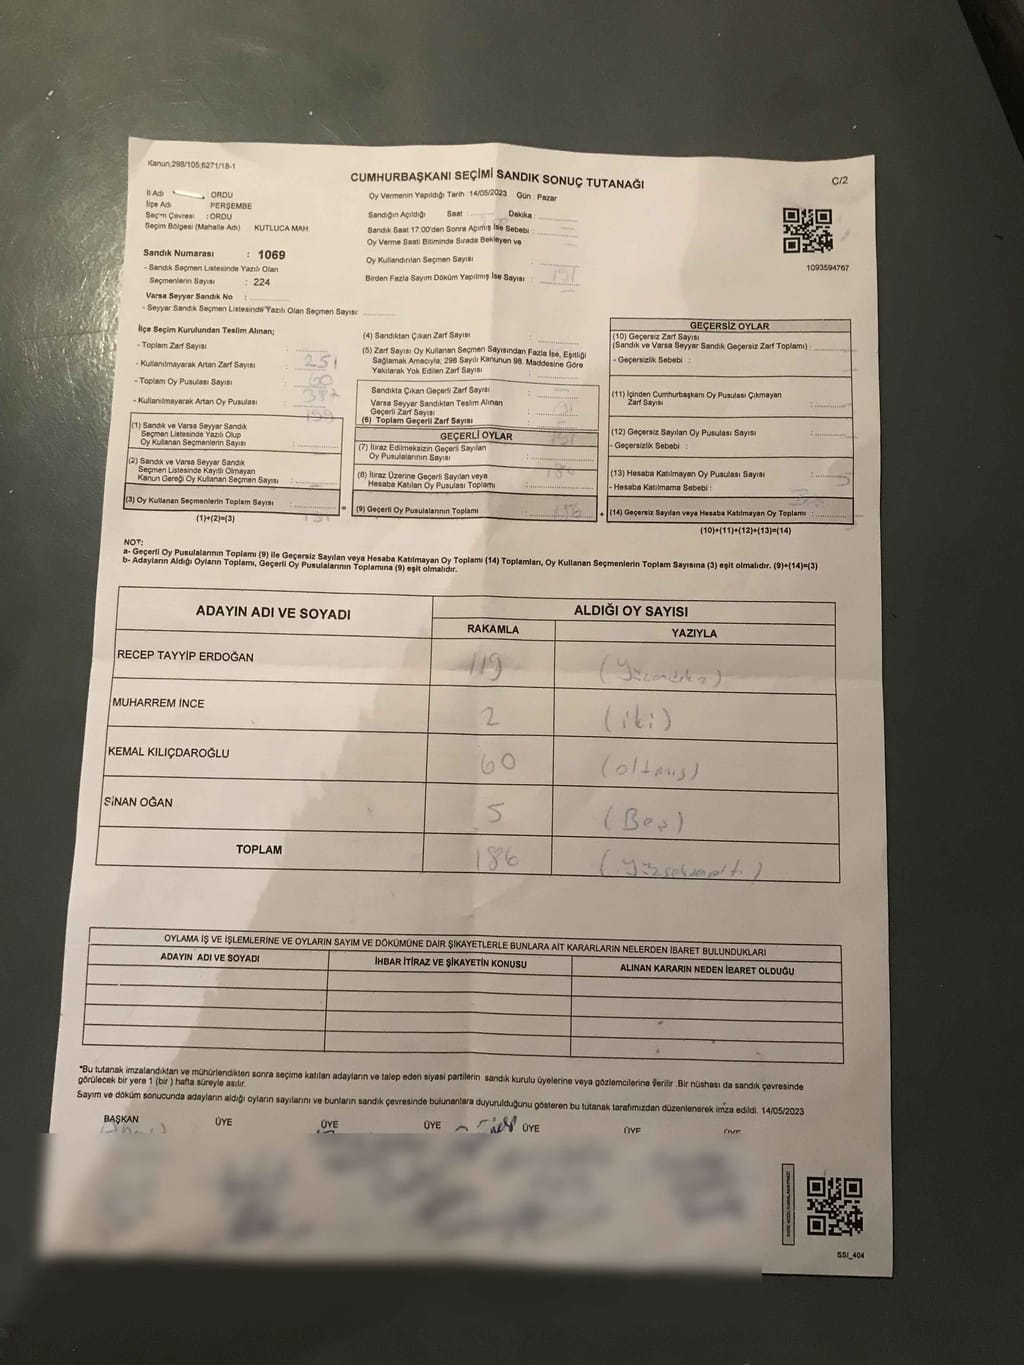 Kanun;298/105,6271/18-1
CUMHURBAŞKANI SEÇİMİ SANDIK SONUÇ TUTANAĞI
C/2
İl Adı : ORDU
İlçe Adı PERŞEMBE
Seçim Çevresi : ORDU
Seçim Bölgesi (Mahalle Adı) : KUTLUCA MAH.
Oy Vermenin Yapıldığı Tarih : 14/05/2023 Gün : Pazar
Sandığın Açıldığı Saat : Dakika :
Sandık Saat 17:00'den Sonra Açımış İse Sebebi :
Oy Verme Saati Bitiminde Sırada Bekleyen ve
Oy Kullandırılan Seçmen Sayısı :
Birden Fazla Sayım Döküm Yapılmış İse Sayısı : 191
1093594767
Sandık Numarası : 1069
- Sandık Seçmen Listesinde Yazılı Olan
Seçmenlerin Sayısı : 224
Varsa Seyyar Sandık No :
- Seyyar Sandık Seçmen Listesinde Yazılı Olan Seçmen Sayısı:
İlçe Seçim Kurulundan Teslim Alınan;
- Toplam Zarf Sayısı :
- Kullanılmayarak Artan Zarf Sayısı : 251
- Toplam Oy Pusulası Sayısı : 60
- Kullanılmayarak Artan Oy Pusulası :
199
(1) Sandık ve Varsa Seyyar Sandık
Seçmen Listesinde Yazılı Olup
Oy Kullanan Seçmenlerin Sayısı :
(2) Sandık ve Varsa Seyyar Sandık
Seçmen Listesinde Kayıtlı Olmayan
Kanun Gereği Oy Kullanan Seçmen Sayısı :
(3) Oy Kullanan Seçmenlerin Toplam Sayısı :
191
(1)+(2)=(3)
(4) Sandıktan Çıkan Zarf Sayısı :
(5) Zarf Sayısı Oy Kullanan Seçmen Sayısından Fazla İse, Eşitliği
Sağlamak Amacıyla; 298 Sayılı Kanunun 98. Maddesine Göre
Yakılarak Yok Edilen Zarf Sayısı :
Sandıkta Çıkan Geçerli Zarf Sayısı :
Varsa Seyyar Sandıktan Teslim Alınan
Geçerli Zarf Sayısı :
(6) Toplam Geçerli Zarf Sayısı : 191
=
GEÇERLİ OYLAR
(7) İtiraz Edilmeksizin Geçerli Sayılan
Oy Pusulasının Sayısı :
186
(8) İtiraz Üzerine Geçerli Sayılan veya
Hesaba Katılan Oy Pusulası Toplamı :
(9) Geçerli Oy Pusulalarının Toplamı : 186
+
GEÇERSİZ OYLAR
(10) Geçersiz Zarf Sayısı
(Sandık ve Varsa Seyyar Sandık Geçersiz Zarf Toplamı) :
- Geçersizlik Sebebi :
(11) İçinden Cumhurbaşkanı Oy Pusulası Çıkmayan
Zarf Sayısı :
(12) Geçersiz Sayılan Oy Pusulası Sayısı :
- Geçersizlik Sebebi :
(13) Hesaba Katılmayan Oy Pusulası Sayısı : 5
- Hesaba Katılmama Sebebi :
(14) Geçersiz Sayılan veya Hesaba Katılmayan Oy Toplamı :
(10)+(11)+(12)+(13)=(14)
NOT:
a- Geçerli Oy Pusulalarının Toplamı (9) ile Geçersiz Sayılan veya Hesaba Katılmayan Oy Toplamı (14) Toplamları, Oy Kullanan Seçmenlerin Toplam Sayısına (3) eşit olmalıdır. (9)+(14)=(3)
b- Adayların Aldığı Oyların Toplamı, Geçerli Oy Pusulalarının Toplamına (9) eşit olmalıdır.
ADAYIN ADI VE SOYADI
ALDIĞI OY SAYISI
RAKAMLA
YAZIYLA
RECEP TAYYİP ERDOĞAN 119
MUHARREM İNCE 2 (iki)
KEMAL KILIÇDAROĞLU 60 (altmış)
SİNAN OĞAN 5 (Beş)
TOPLAM 186 (Yüzseksenaltı)
OYLAMA İŞ VE İŞLEMLERİNE VE OYLARIN SAYIM VE DÖKÜMÜNE DAİR ŞİKAYETLERLE BUNLARA AİT KARARLARIN NELERDEN İBARET BULUNDUKLARI
ADAYIN ADI VE SOYADI
İHBAR İTİRAZ VE ŞİKAYETİN KONUSU
ALINAN KARARIN NEDEN İBARET OLDUĞU
*Bu tutanak imzalandıktan ve mühürlendikten sonra seçime katılan adayların ve talep eden siyasi partilerin sandık kurulu üyelerine veya gözlemcilerine verilir .Bir nüshası da sandık çevresinde
görülecek bir yere 1 (bir ) hafta süreyle asılır.
Sayım ve döküm sonucunda adayların aldığı oyların sayılarını ve bunların sandık çevresinde bulunanlara duyurulduğunu gösteren bu tutanak tarafımızdan düzenlenerek imza edildi. 14/05/2023
BAŞKAN ÜYE ÜYE ÜYE ÜYE ÜYE ÜYE
SSI_404